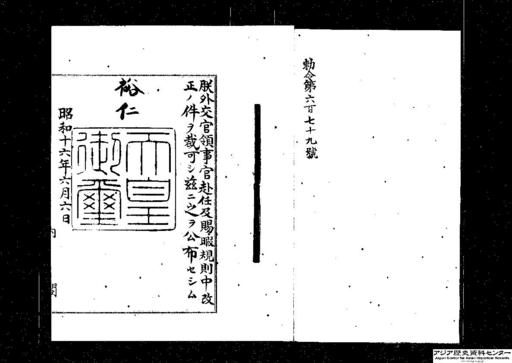 勅令第六百七十九號
朕外交官領事官赴任及賜暇規則中改
正ノ件ヲ裁可シ茲ニ之ヲ公布セシム
裕仁
天皇御璽
昭和十六年六月六日
内閣
アジア歴史資料センター
Japan Center for Asian Historical Records